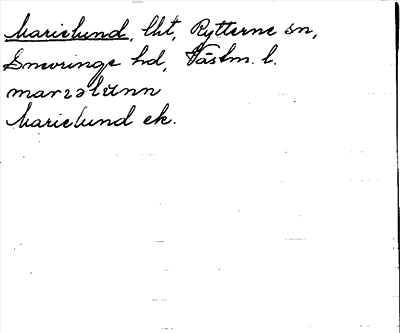 Marielund, lht, Rytterne sn,
Snevringe hd, Västm. l.
marɪəlɯ̈nn
Marielund ek.